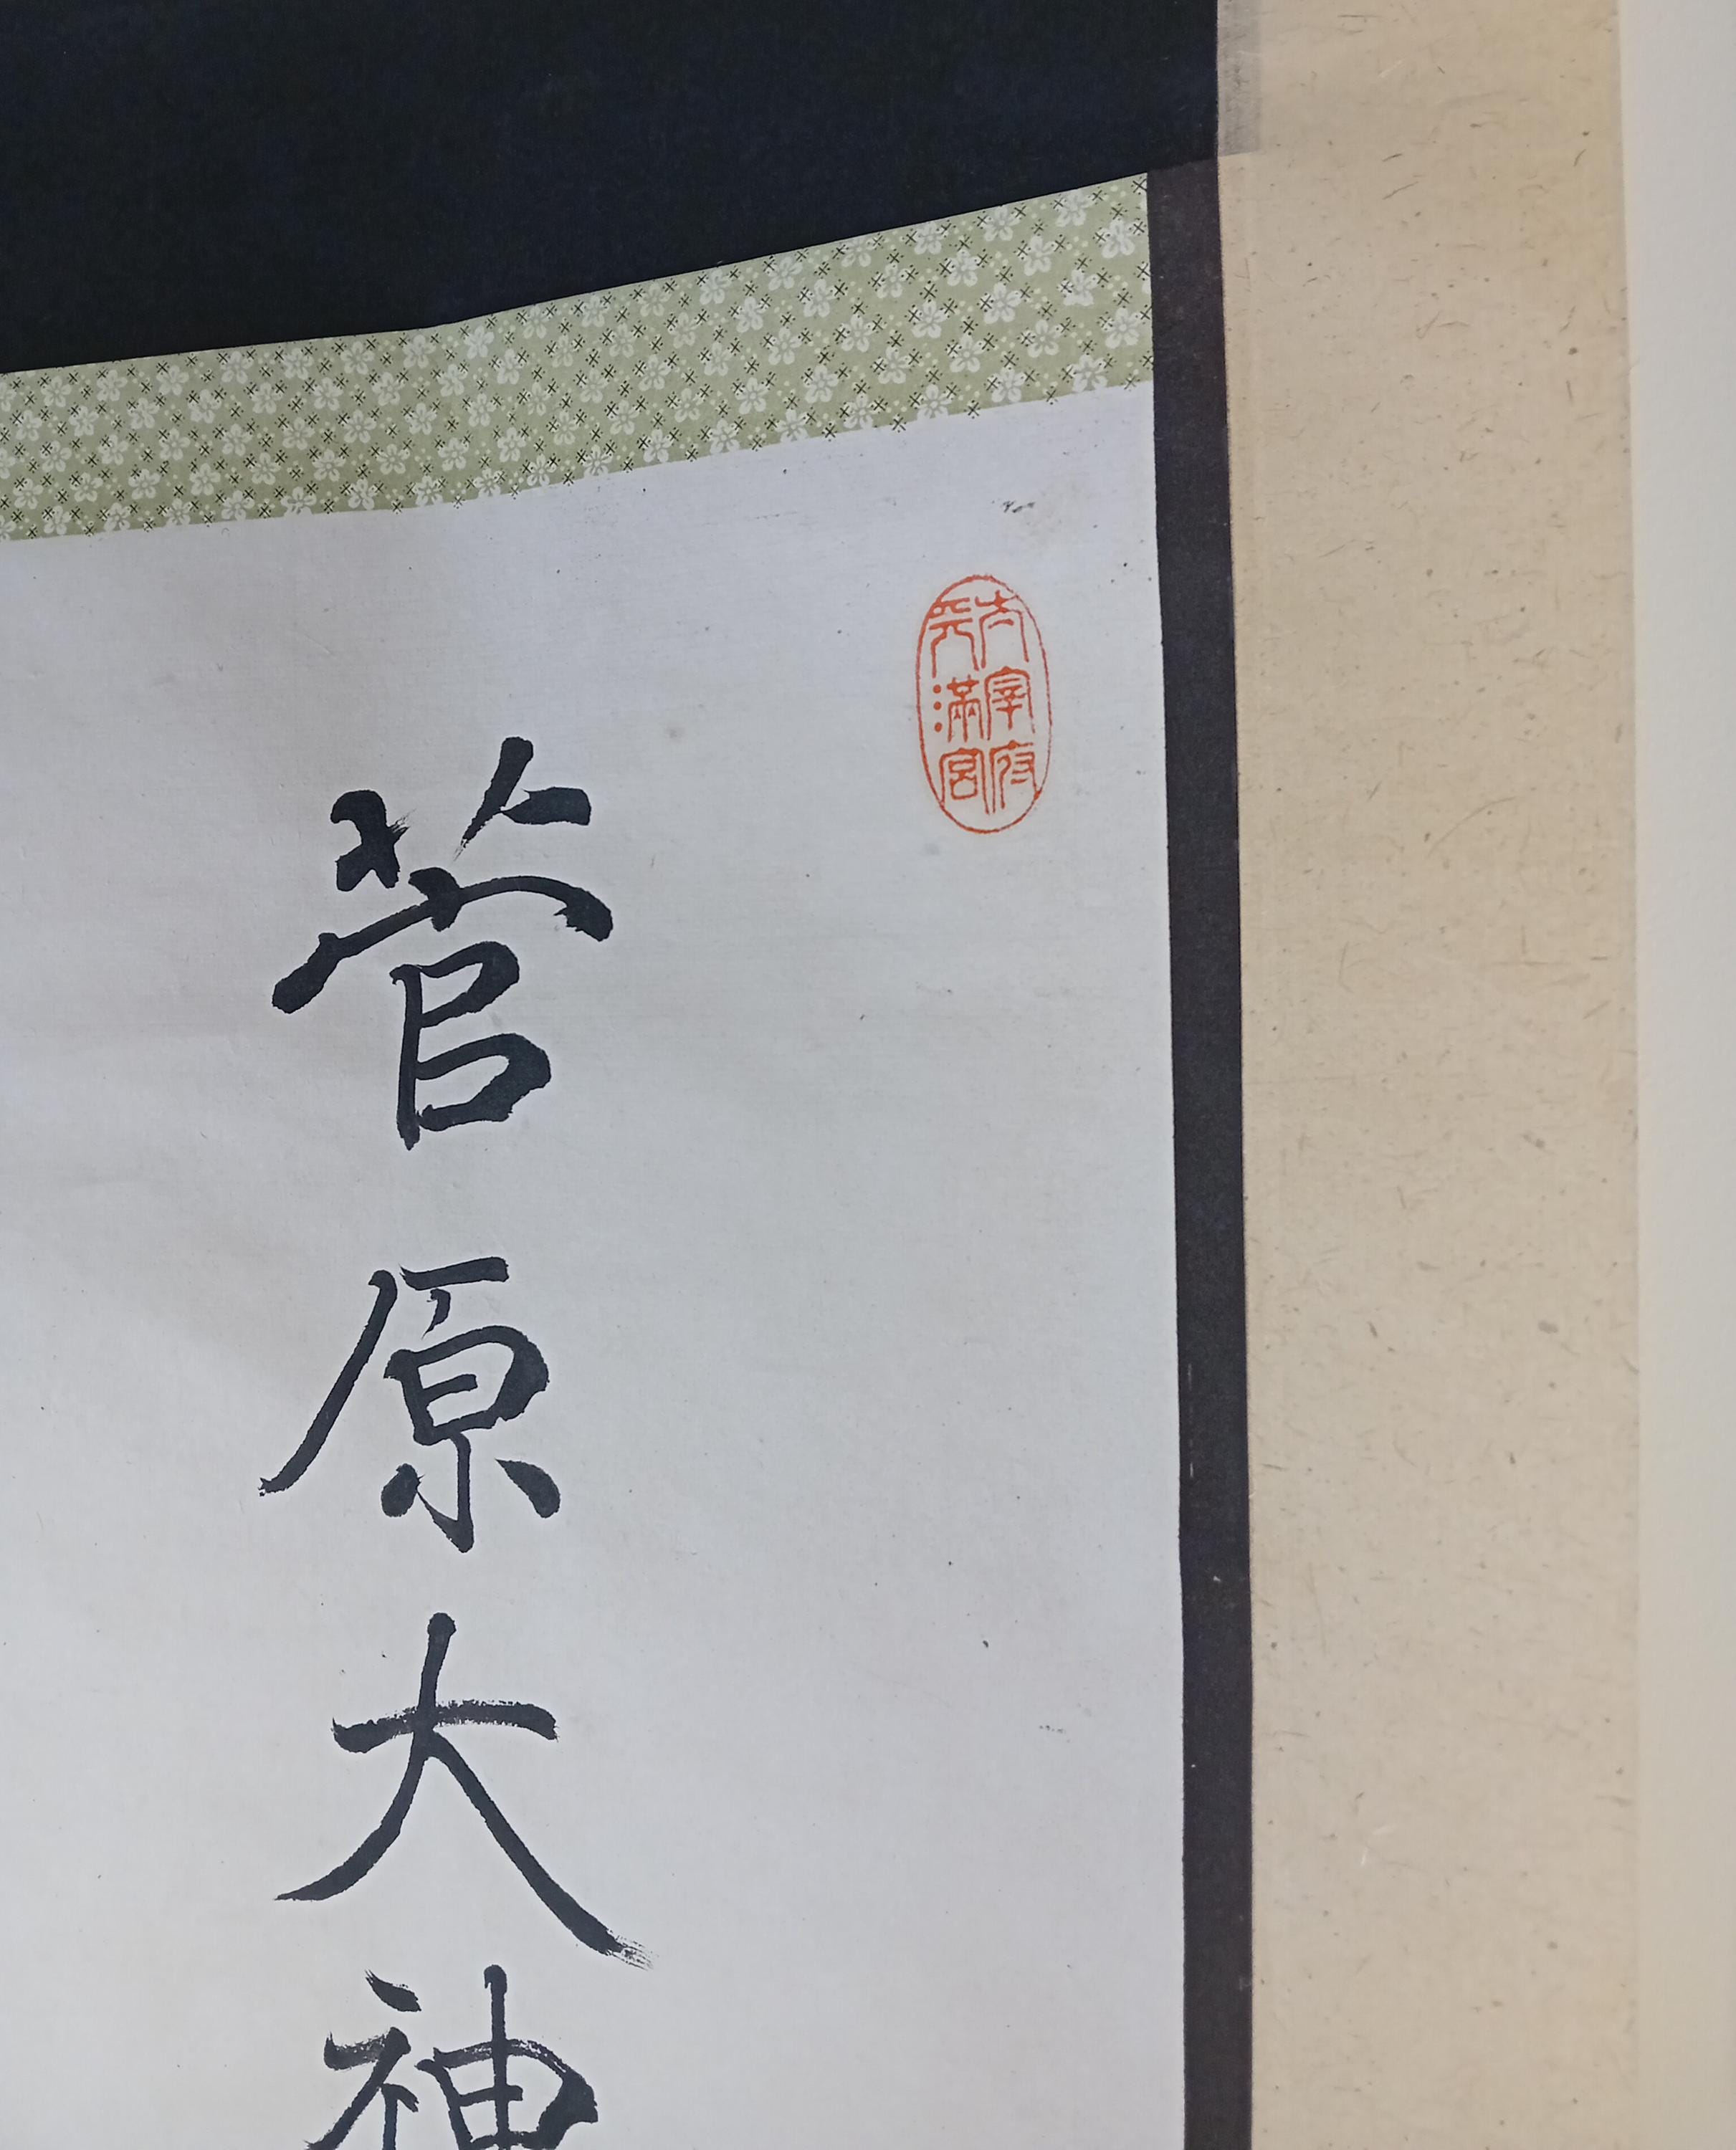 太宰府
天満宮
菅原大神